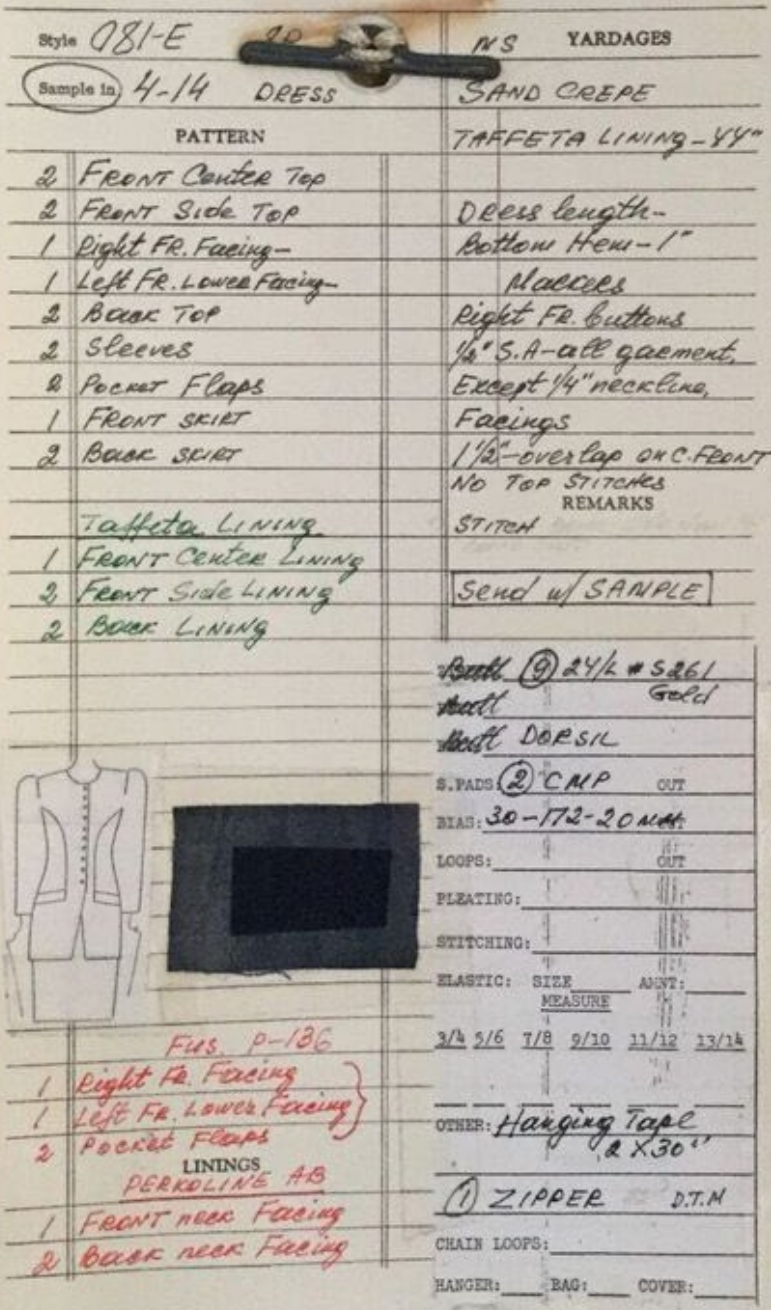 Style 081-E
Sample in 4-14 DRESS
PATTERN
2 FRONT Center Top
2 FRONT Side TOP
1 Right FR. Facing-
1 Left FR. Lower Facing-
2 Back TOP
2 Sleeves
2 Pocket Flaps
1 FRONT SKIRT
2 Back SKIRT
Taffeta LINING
1 FRONT Center LINING
2 FRONT Side LINING
2 Back LINING
Fus. P-136
1 Right FR. Facing
1 Left FR. Lower Facing
2 Pocket Flaps
LININGS
PERKOLINE AB
1 FRONT neck Facing
2 Back neck Facing
NS YARDAGES
SAND CREPE
TAFFETA LINING-44"
Dress length-
Bottom Hem-1"
Markers
Right FR. buttons
1/2" S.A-all garment,
Except 1/4" neckline,
Facings
1 1/2"-overlap on C.FRONT
NO TOP STITCHES
REMARKS
STITCH
Send w/ SAMPLE
Butt (9) 24/L # S261
Gold
Butt
Butt DORSIL
S.PADS: (2) CMP OUT
BIAS: 30-172-20
LOOPS: OUT
PLEATING:
STITCHING:
ELASTIC: SIZE AMNT:
MEASURE
3/4 5/6 7/8 9/10 11/12 13/14
OTHER: Hanging Tape
2 X 30"
(1) ZIPPER D.T.M
CHAIN LOOPS:
HANGER: BAG: COVER: